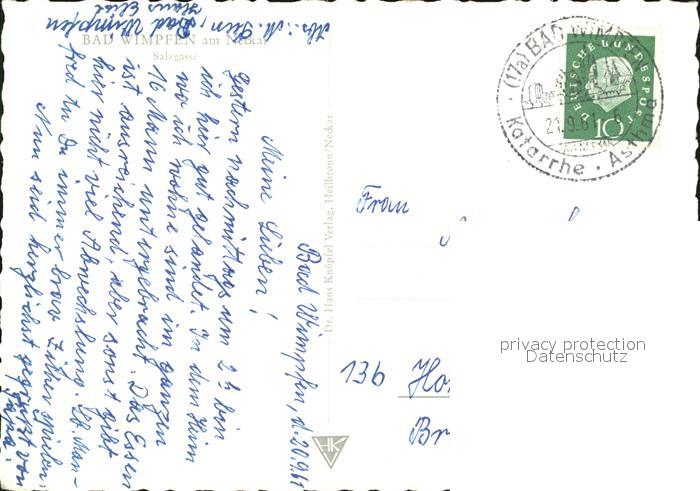 Abs.: M.
Bad Wimpfen
Haus
BAD WIMPFEN am Neckar
Salzgasse
Bad Wimpfen, d. 20.9.61
Meine Lieben!
Gestern nachmittags um 2 h bin
ich hier gut gelandet. In dem Heim
wo ich wohne sind im ganzen
16 Mann untergebracht. Das Essen
ist ausreichend, aber sonst gibt
hier nicht viel Abwechslung. Lb. Man-
fred tu Du immer brav Zither spielen.
Nun seid herzlichst gegrüßt von
Dr. Hans Knöpfel Verlag, Heilbronn/Neckar
HK
(17a) BAD WIMPFEN
21.9.61
Katarrhe · Asthma
DEUTSCHE BUNDESPOST
10
Frau
13b Ho
Br
privacy protection
Datenschutz